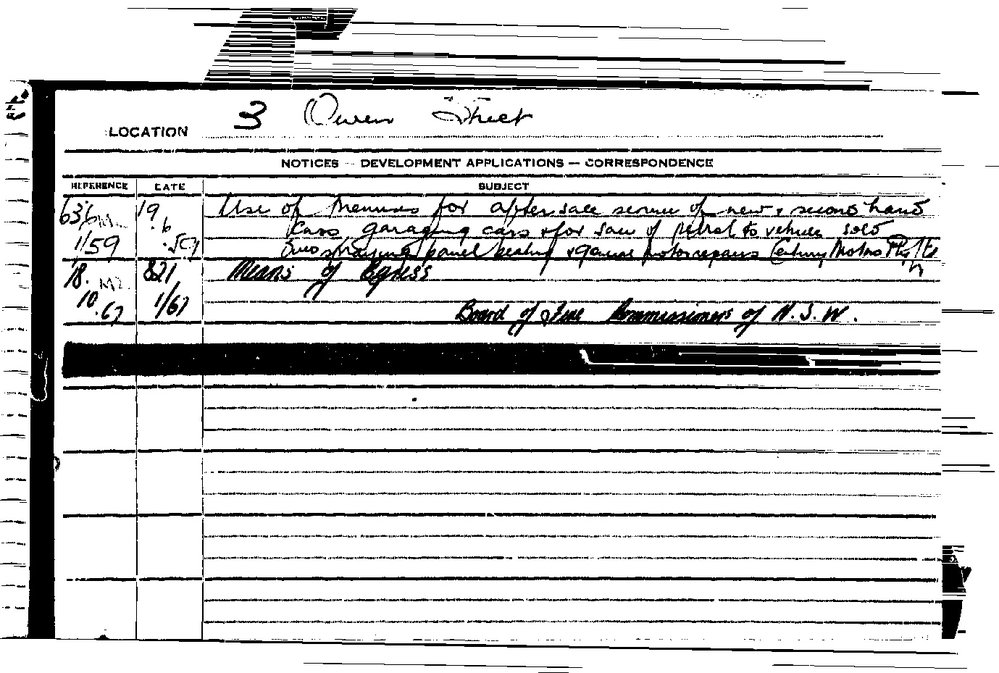 LOCATION 3 Owen Street
NOTICES - DEVELOPMENT APPLICATIONS - CORRESPONDENCE
REFERENCE DATE SUBJECT
636 19. Use of Premises for after sale service of new & second hand
1/59 6 .59 cars garaging cars & for sale of petrol to vehicles sold
spraying panel beating & motor repairs Century Motors Pty Ltd
18. 821 Means of Egress
10.67 1/67 Board of Fire Commissioners of N.S.W.